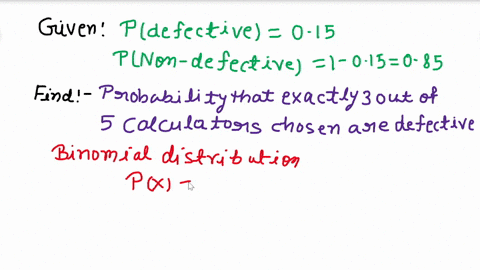 Given! P(defective) = 0.15
P(Non-defective) = 1-0.15=0.85
Find!- Probability that exactly 3 out of
5 calculators chosen are defective
Binomial distribution
P(x) -